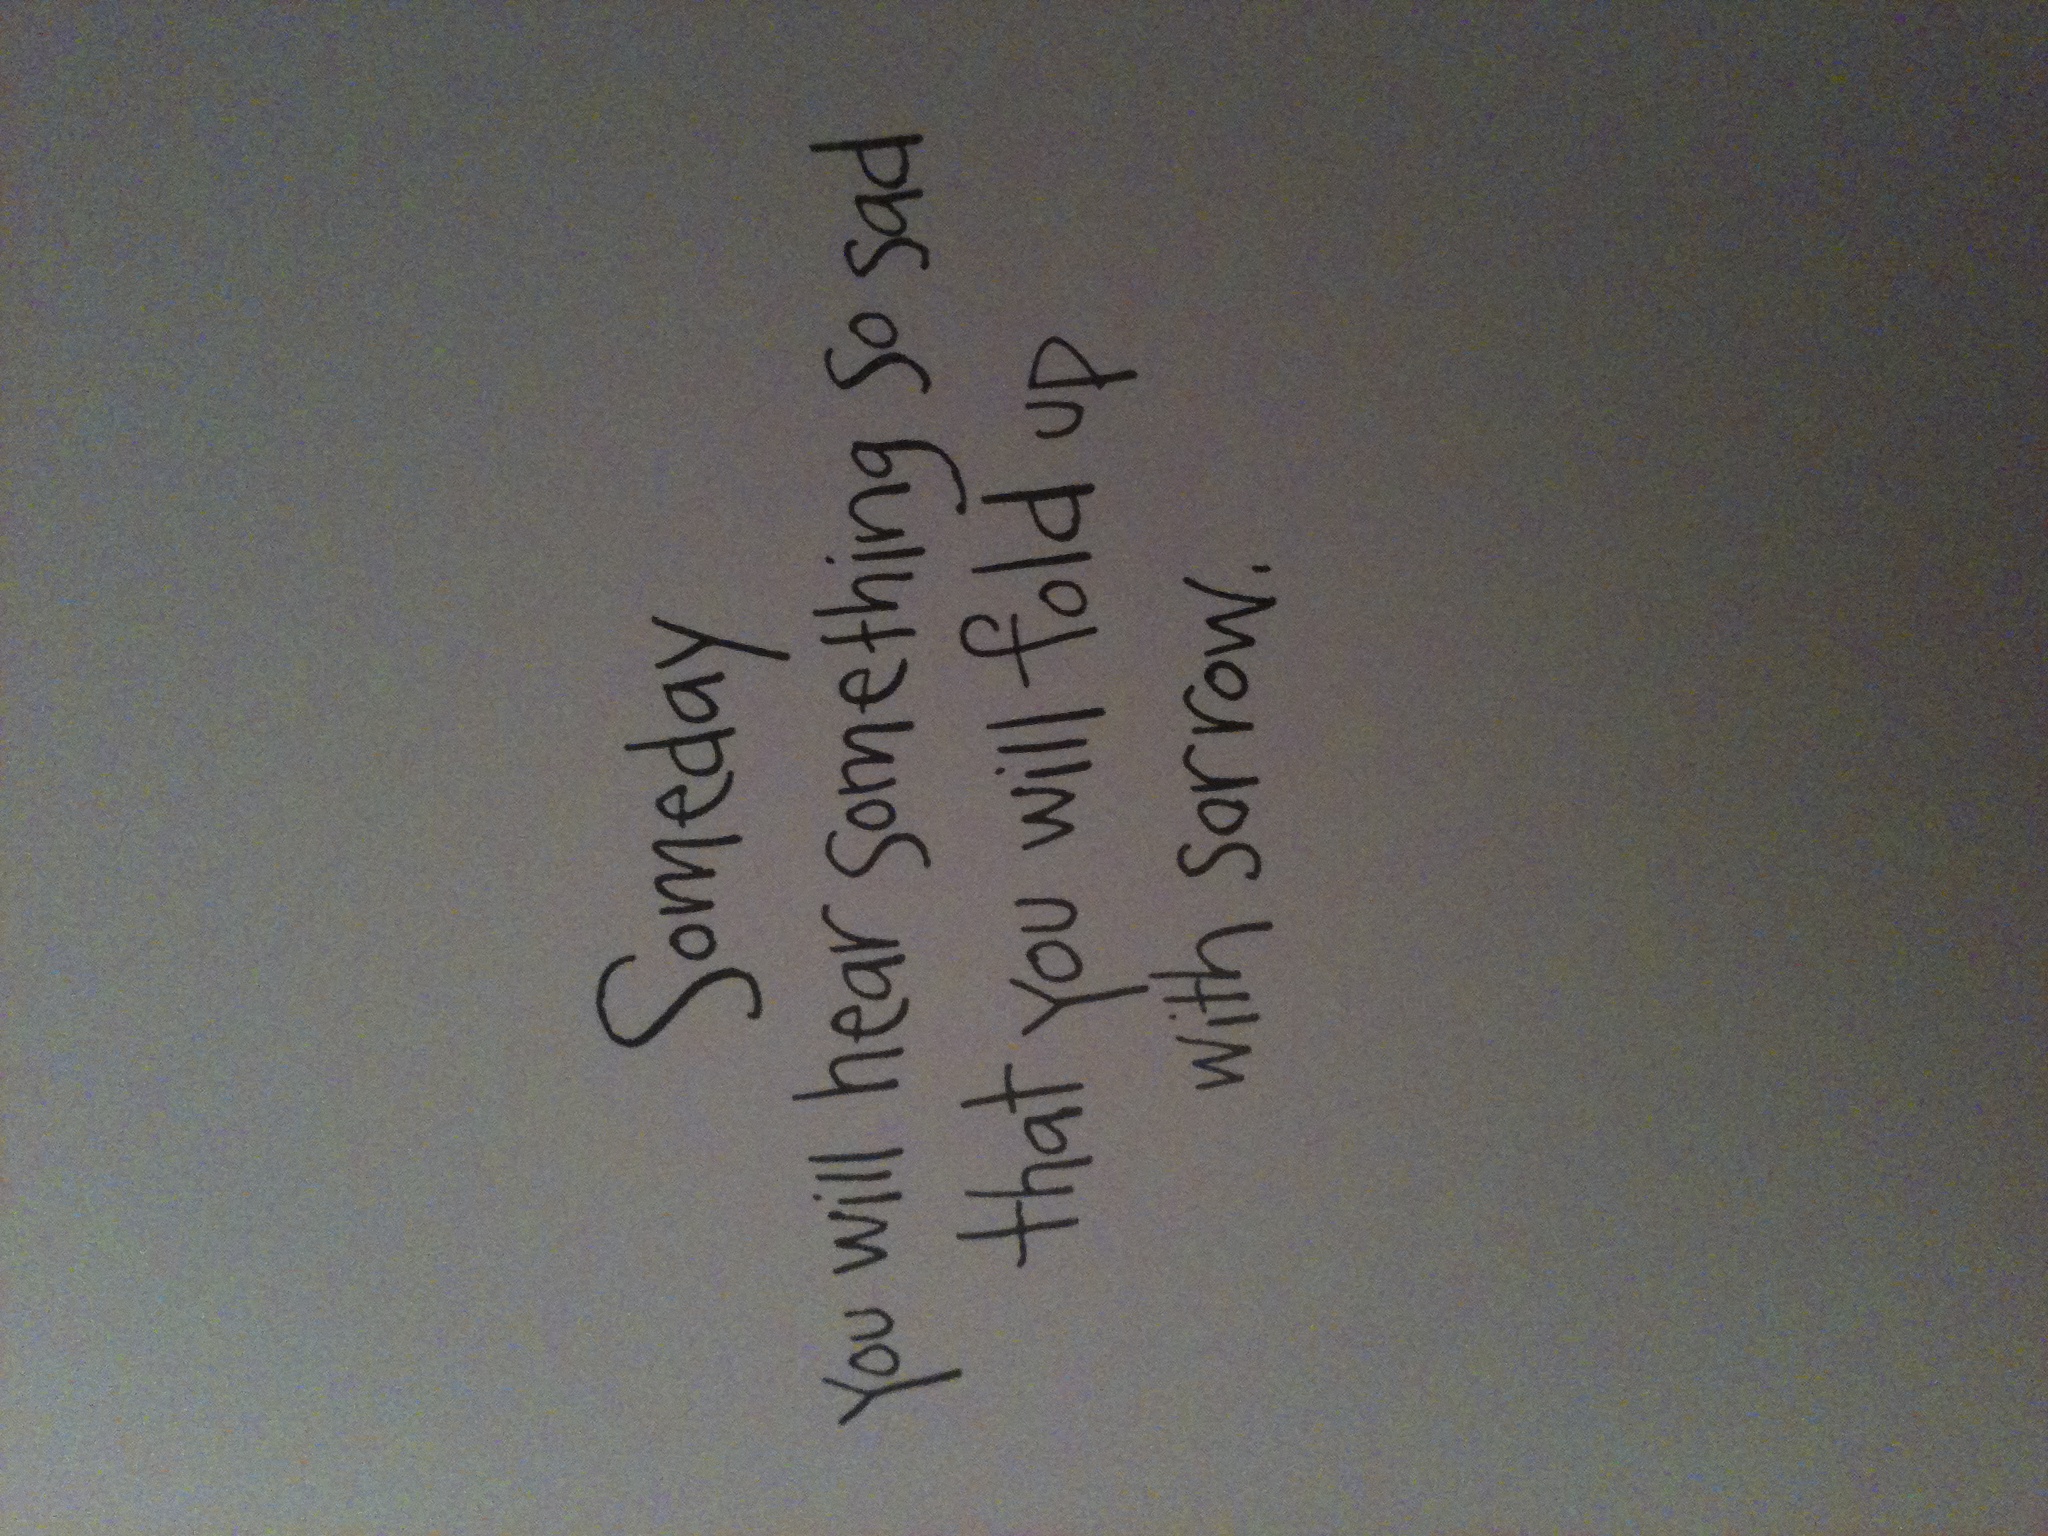 Someday
you will hear something so sad
that you will fold up
with sorrow.